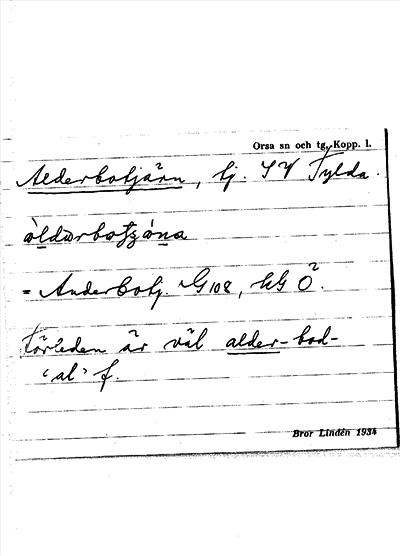 Orsa sn och tg, Kopp. l.
Alderbotjärn, tj. SV Fylda.
= Anderbotj. G108, kG Ö.
Förleden är väl alder-bod-
'al' f.
Bror Lindén 1934